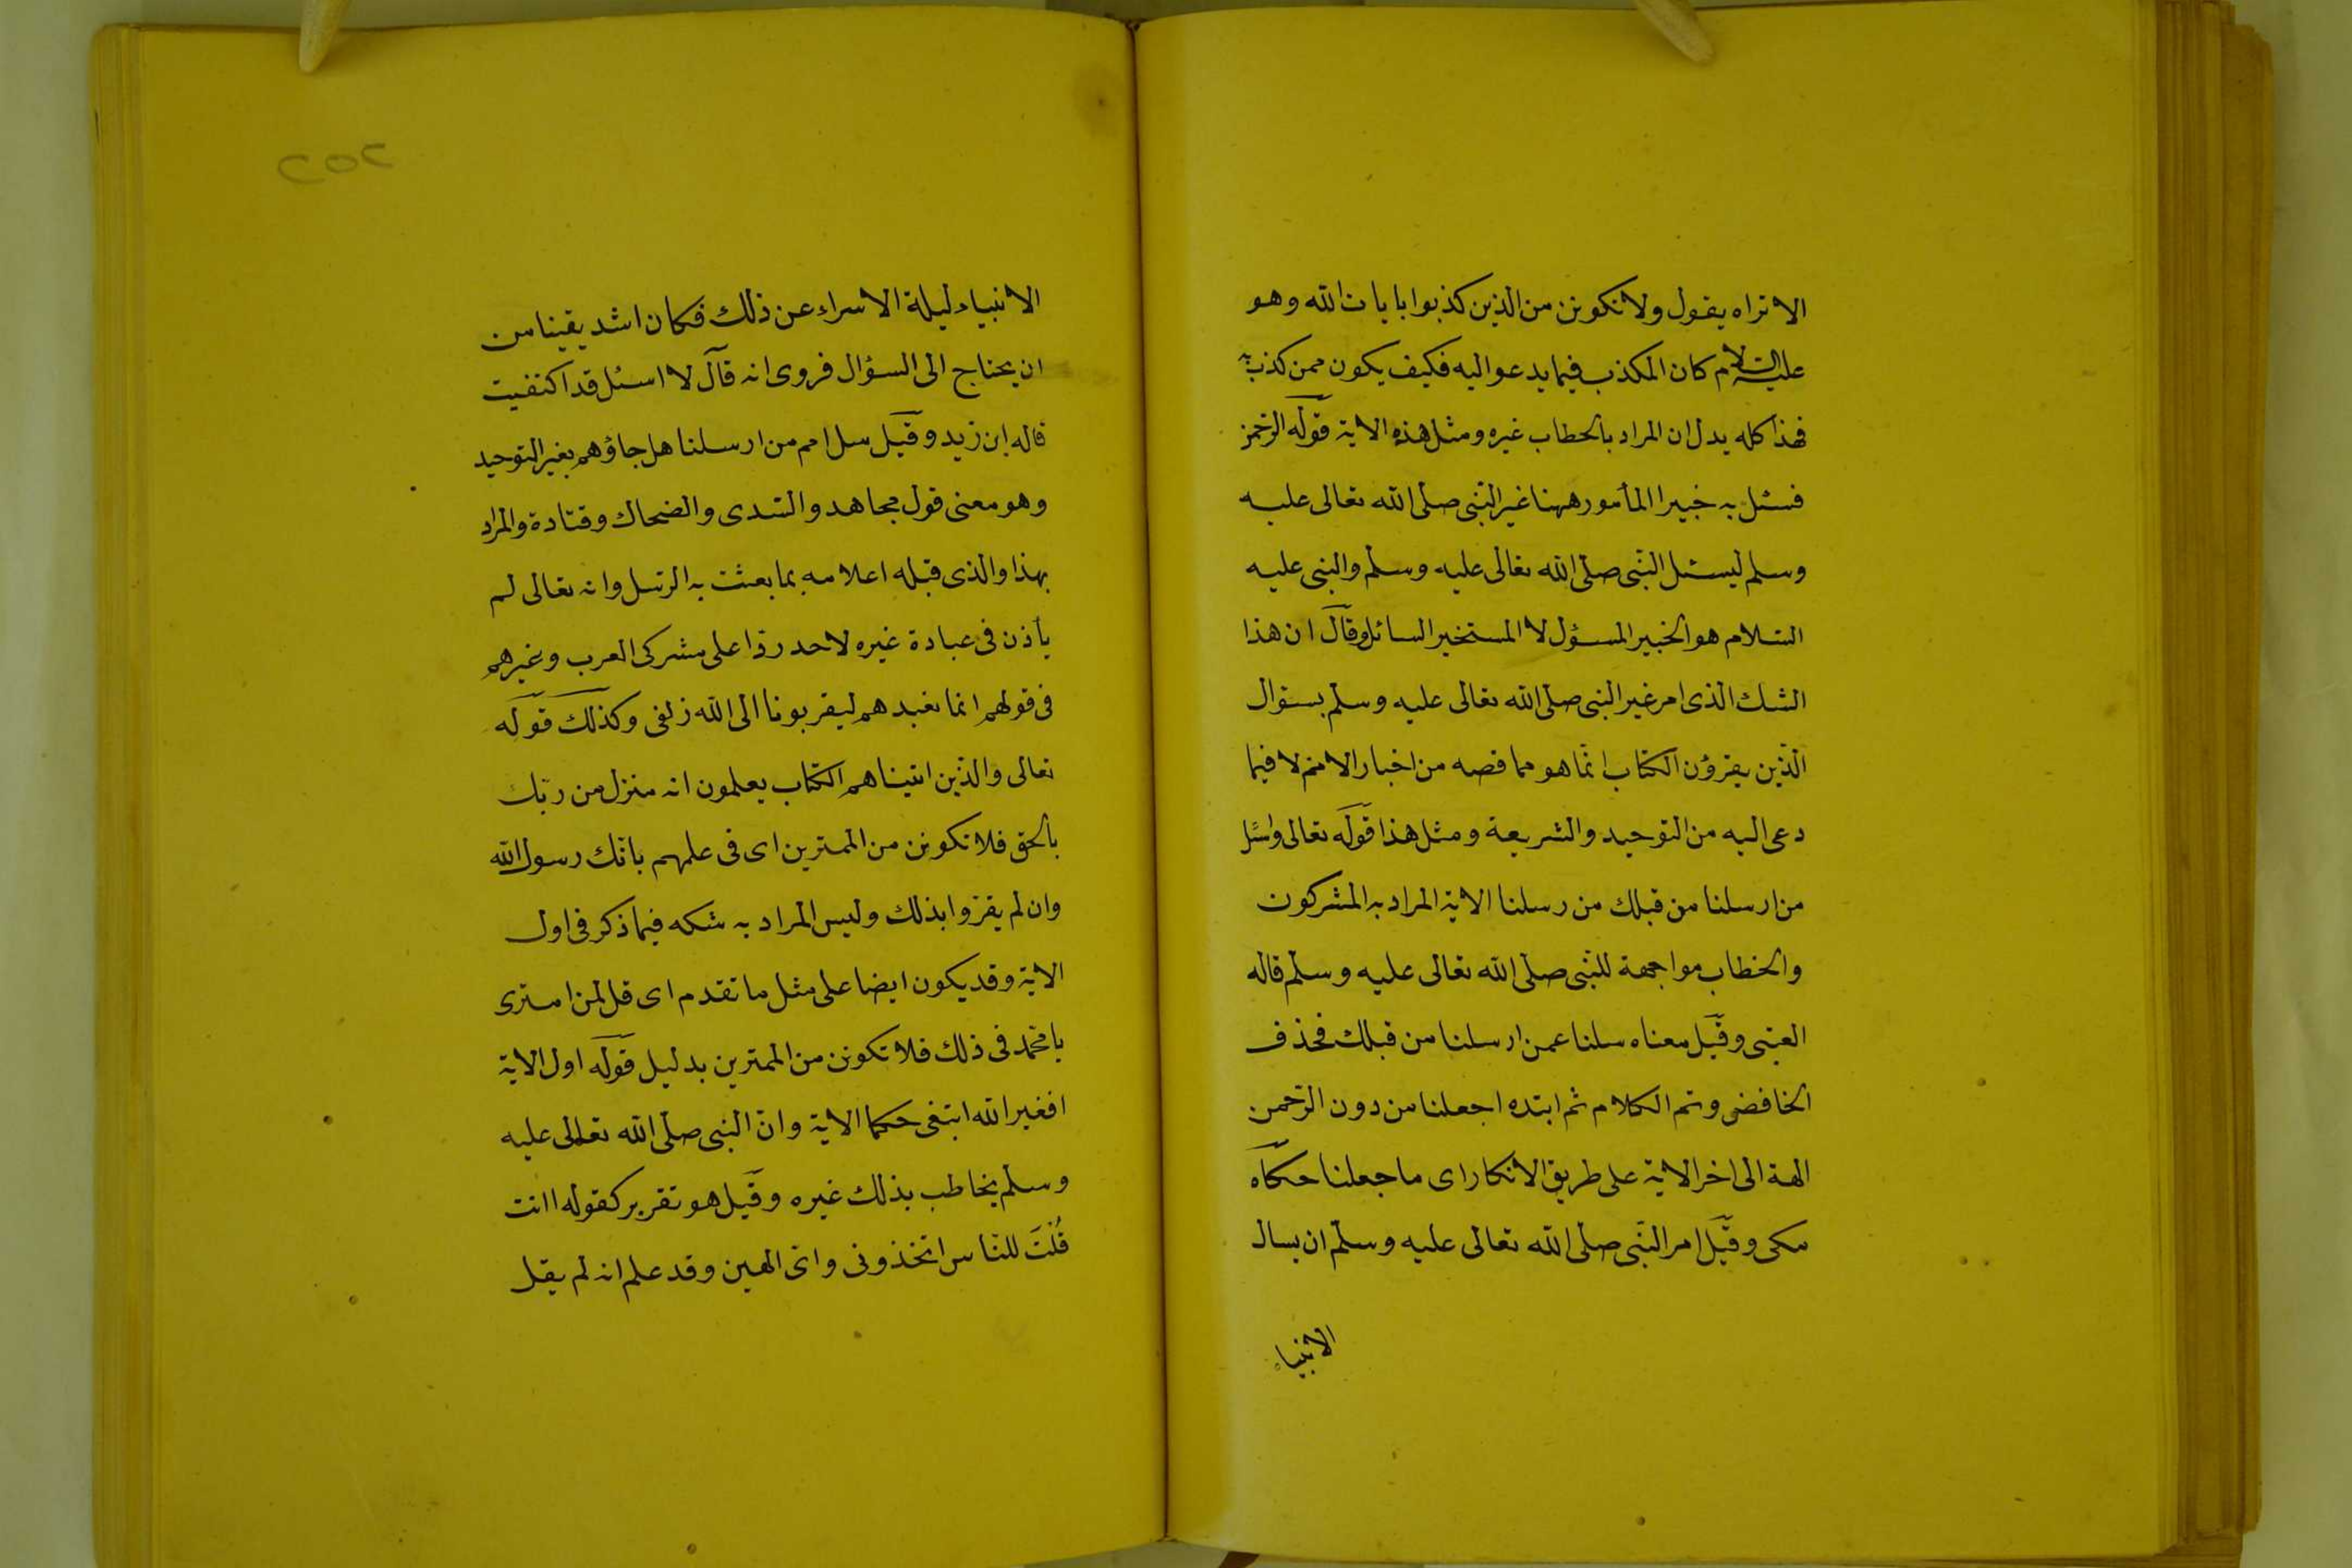 الا تراه يقول ولا تكونن من الذين كذبوا بايات الله وهو
عليه السلام كان المكذب فيما يدعو اليه فكيف يكون ممن كذب به
فهذا كله يدل ان المراد بالخطاب غيره ومثل هذه الاية قوله الرحمن
فسئل به خبيرا المأمور ههنا غير النبى صلى الله تعالى عليه
وسلم ليسئل النبى صلى الله تعالى عليه وسلم والنبى عليه
السلام هو الخبير المسؤل لا المستخبر السائل وقال ان هذا
الشك الذى امر غير النبى صلى الله تعالى عليه وسلم بسؤال
الذين يقرؤن الكتاب انما هو مما قصه من اخبار الامم لا فيما
دعى اليه من التوحيد والشريعة ومثل هذا قوله تعالى واسئل
من ارسلنا من قبلك من رسلنا الاية المراد به المشركون
والخطاب مواجهة للنبى صلى الله تعالى عليه وسلم قاله
العتبى وقيل معناه سلنا عمن ارسلنا من قبلك فحذف
الخافض وتم الكلام ثم ابتده اجعلنا من دون الرحمن
الهة الى اخر الاية على طريق الانكار اى ما جعلنا حكاه
مكى وقيل امر النبى صلى الله تعالى عليه وسلم ان يسال
الانبياء
٢٥٢
الانبياء ليلة الاسراء عن ذلك فكان اشد يقينا من
ان يحتاج الى السؤال فروى انه قال لا اسئل قد اكتفيت
قاله ابن زيد وقيل سل امم من ارسلنا هل جاؤهم بغير التوحيد
وهو معنى قول مجاهد والسدى والضحاك وقتادة والمراد
بهذا والذى قبله اعلامه بما بعثت به الرسل وانه تعالى لم
يأذن فى عبادة غيره لاحد ردا على مشركى العرب وغيرهم
فى قولهم انما نعبدهم ليقربونا الى الله زلفى وكذلك قوله
تعالى والذين اتيناهم الكتاب يعلمون انه منزل من ربك
بالحق فلا تكونن من الممترين اى فى علمهم بانك رسول الله
وان لم يقروا بذلك وليس المراد به شكه فيما ذكر فى اول
الاية وقد يكون ايضا على مثل ما تقدم اى قل لمن امترى
يا محمد فى ذلك فلا تكونن من الممترين بدليل قوله اول الاية
افغير الله ابتغى حكما الاية وان النبى صلى الله تعالى عليه
وسلم يخاطب بذلك غيره وقيل هو تقرير كقوله اانت
قُلْتَ للناس اتخذونى وامى الهين وقد علم انه لم يقل